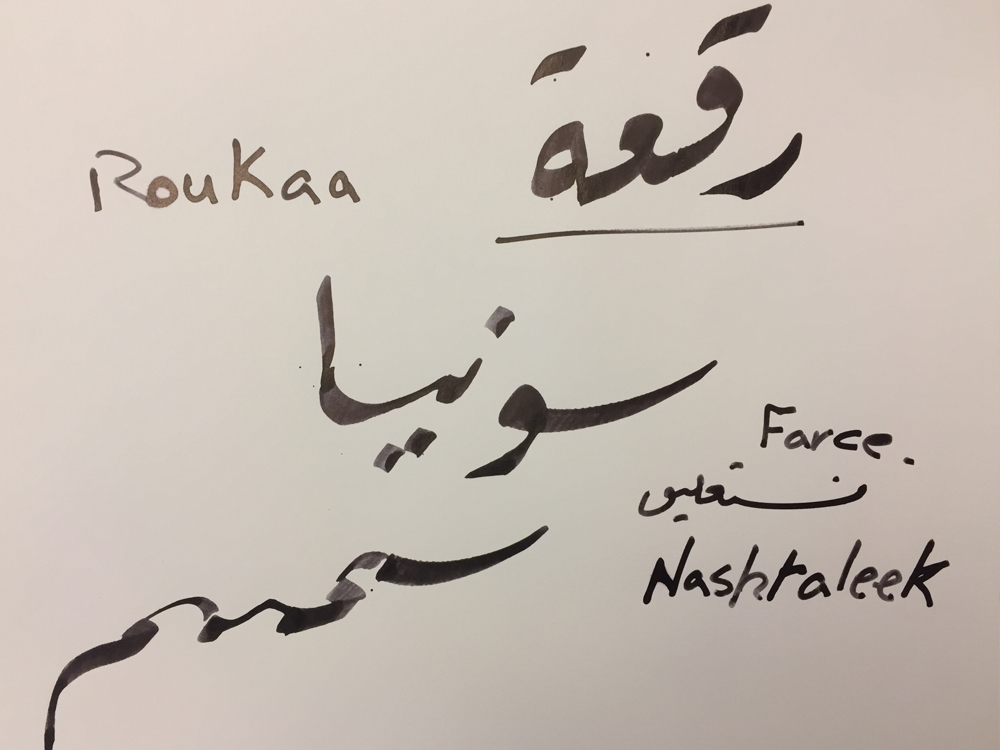 رقعة
RouKaa
سونيا
Farce.
نستعليق
Nashtaleek